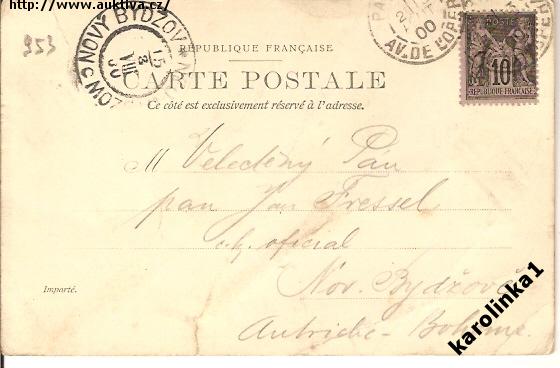 http://www.auktiva.cz
953
NOVÝ BYDŽOV
15
8
VIII
00
PA
2
00
AV. DE L'OPERA
POSTE
10
REPUBLIQUE FRANÇAISE
RÉPUBLIQUE FRANÇAISE
CARTE POSTALE
Ce côté est exclusivement réservé à l'adresse.
M Veleděný Pán
pan Jan Fressel
c.k. oficial
Nov. Bydžově
Autriche-Boheme.
Importé.
karolinka1